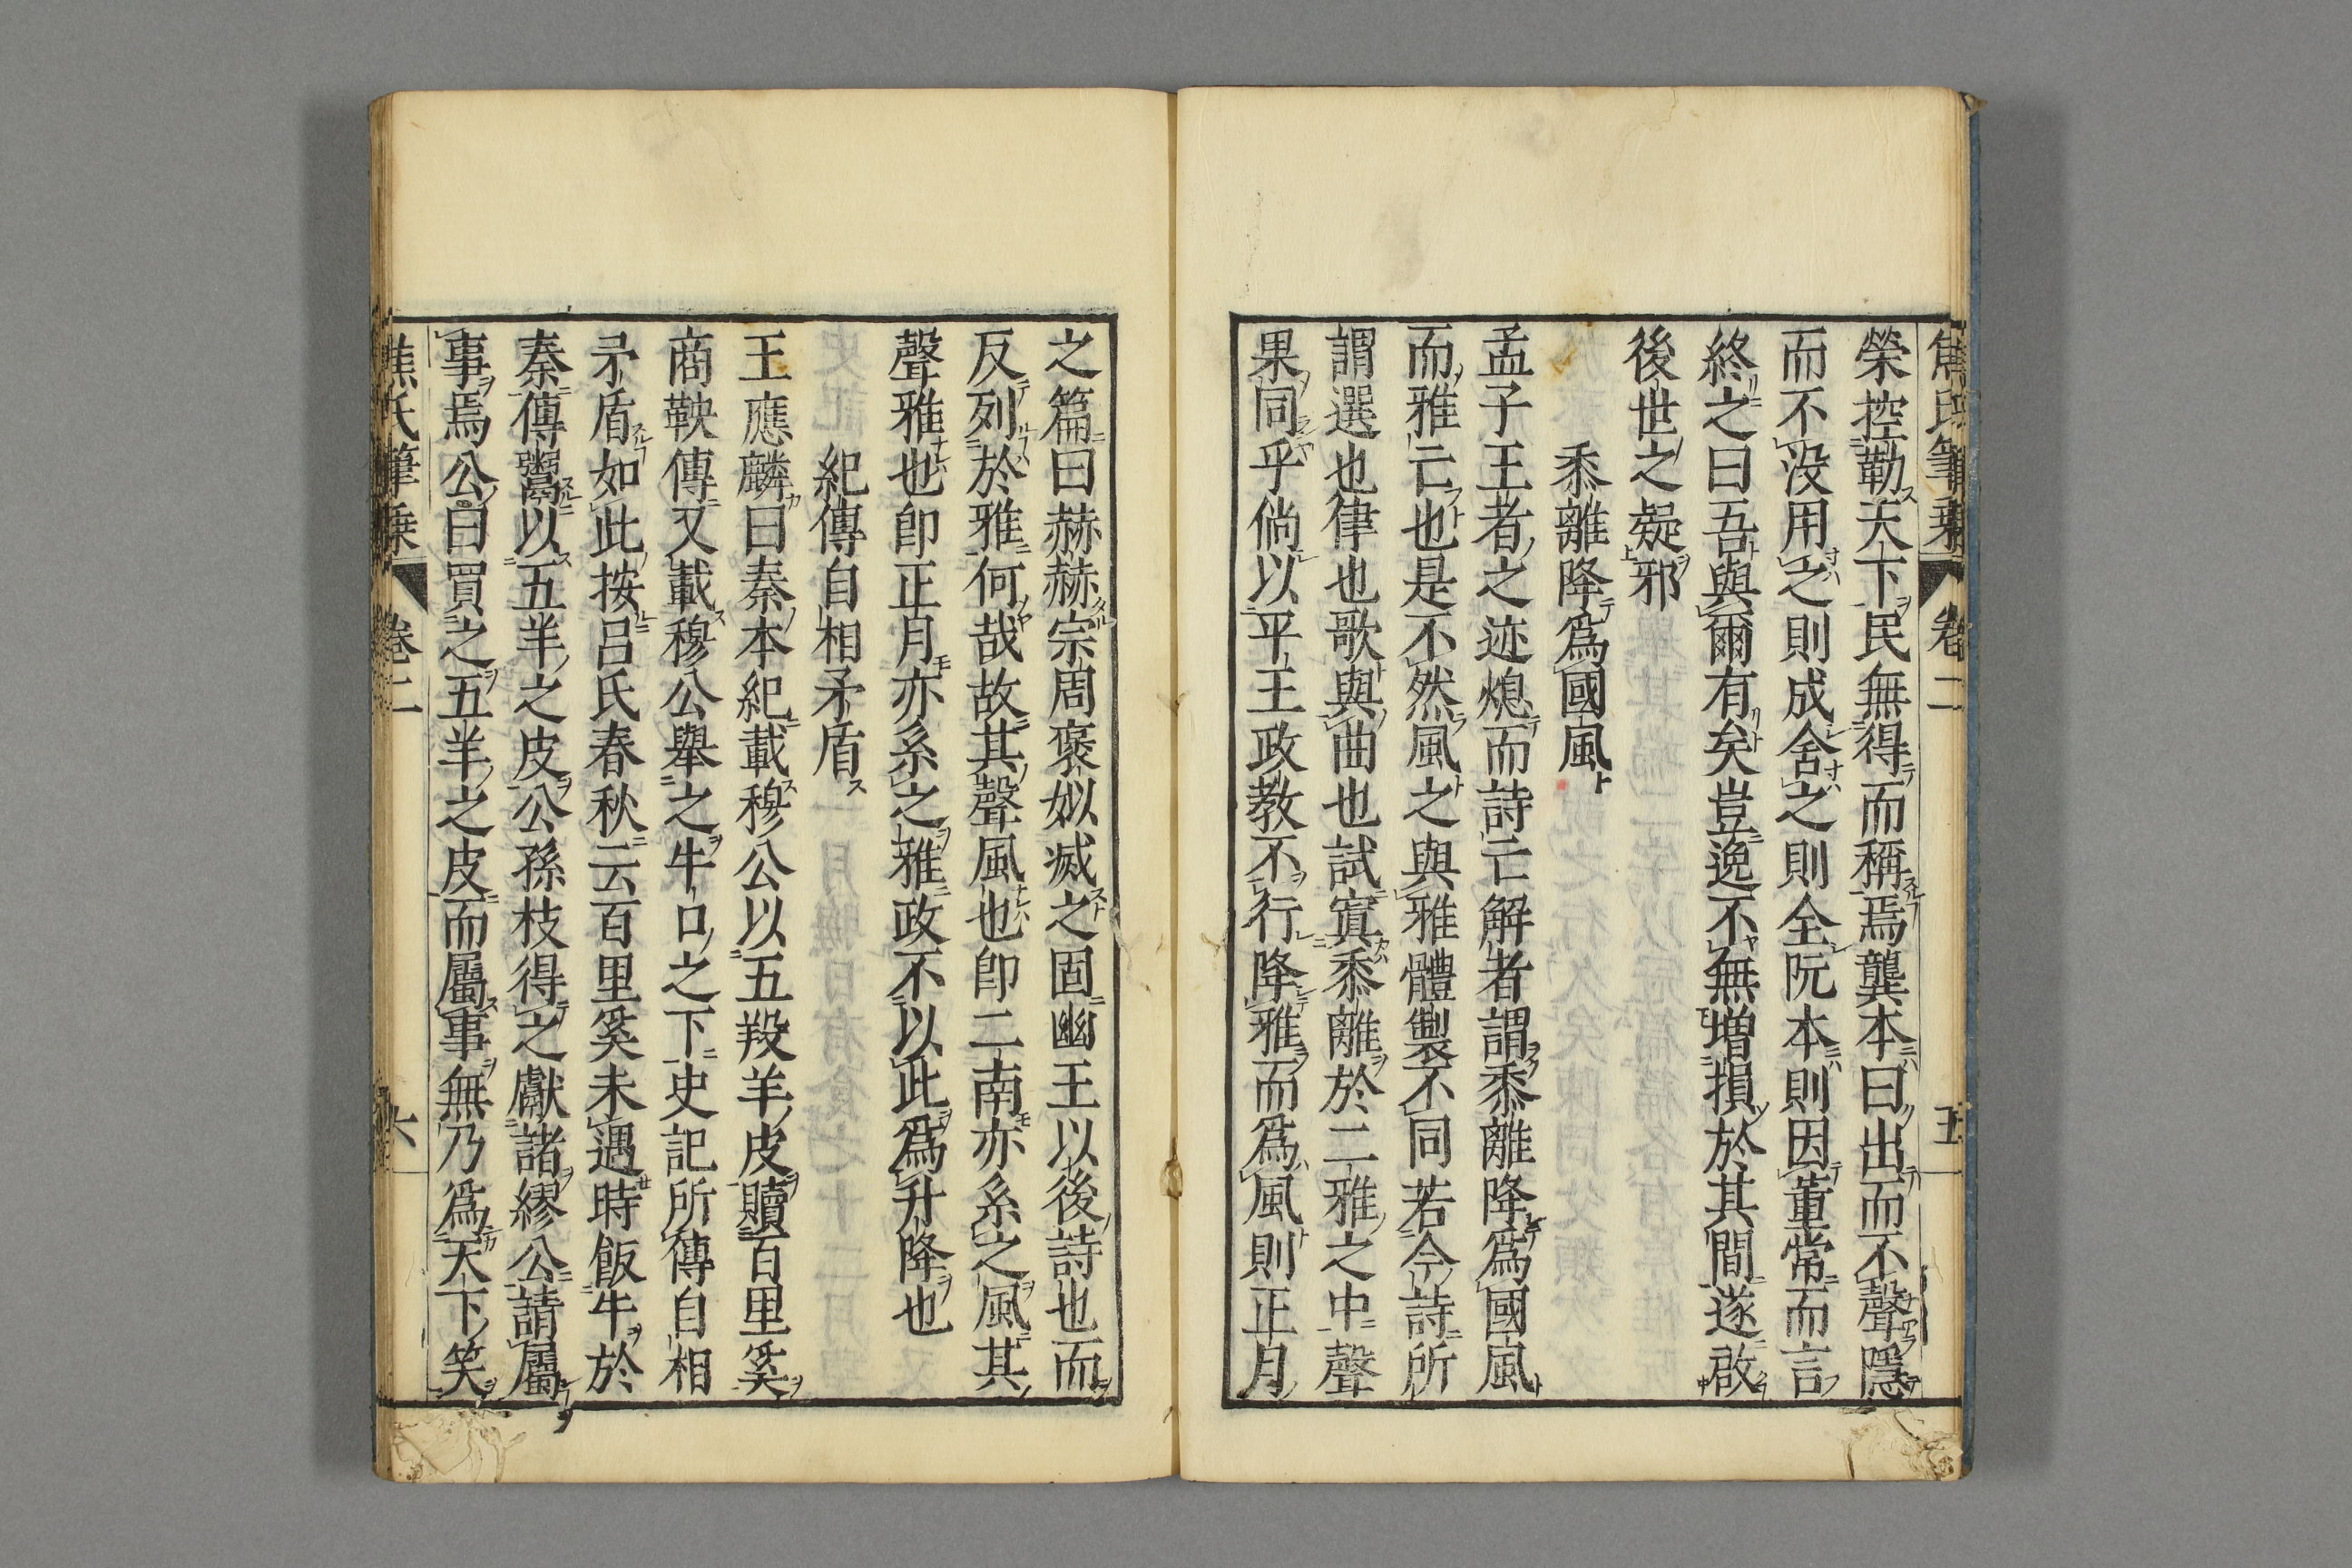 焦氏筆乗 卷二 五
榮控勒天下民無得而稱焉龔本曰出而不聲隱
而不没用之則成舍之則全阮本則因董常而言
終之曰吾與爾有矣豈逸不無増損於其間遂啟
後世之疑邪
黍離降爲國風
孟子王者之迹熄而詩亡解者謂黍離降爲國風
而雅亡也是不然風之與雅體製不同若今詩所
謂選也律也歌與曲也試寘黍離於二雅之中聲
果同乎倘以平王政教不行降雅而爲風則正月
之篇曰赫赫宗周褒姒滅之固幽王以後詩也而
反列於雅何哉故其聲風也即二南亦系之風其
聲雅也即正月亦系之雅政不以此爲升降也
紀傳自相矛盾
王應麟曰秦本紀載穆公以五羖羊皮贖百里奚
商鞅傳又載穆公舉之牛口之下史記所傳自相
矛盾如此按呂氏春秋云百里奚未遇時飯牛於
秦傳鬻以五羊之皮公孫枝得之獻諸繆公請屬
事焉公曰買之五羊之皮而屬事無乃爲天下笑
焦氏筆乗 卷二 六